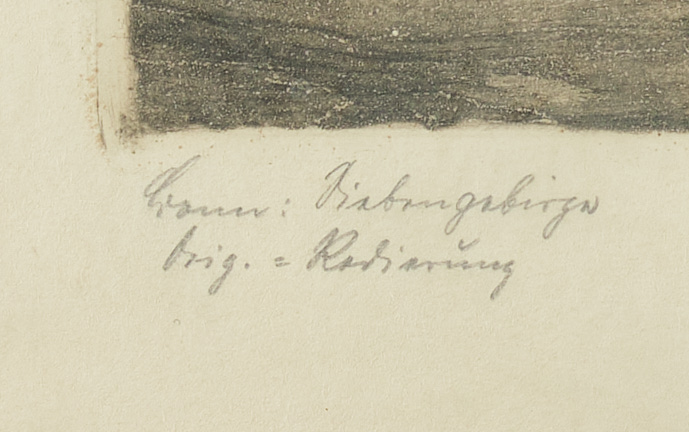 Bonn: Siebengebirge
Orig. = Radierung